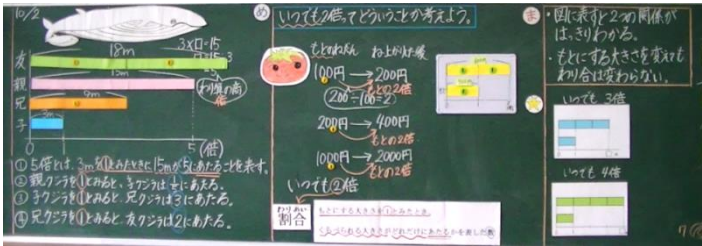 10/2
18m
3×□=15
□=15÷3
友
15m
親
わり算の商
倍
9m
兄
3m
子
0
5(倍)
①5倍とは、3mを①とみたときに、15mが5にあたることを表す。
②親クジラを①とみると、子クジラは1/5にあたる。
③子クジラを①とみると、兄クジラは3にあたる。
④兄クジラを①とみると、友クジラは2にあたる。
め
いつでも2倍ってどういうことか考えよう。
もとのねだん
ね上がりした後
100円→200円
もとの2倍
200÷100=2
200円→400円
もとの2倍
1000円→2000円
もとの2倍
いつでも②倍
わりあい
割合
もとにする大きさを①とみたとき、
くらべられる大きさがどれだけにあたるかを表した数
ま
・図に表すと2つの関係が
はっきりわかる。
・もとにする大きさを変えても
わり合は変わらない。
いつでも 3倍
いつでも 4倍